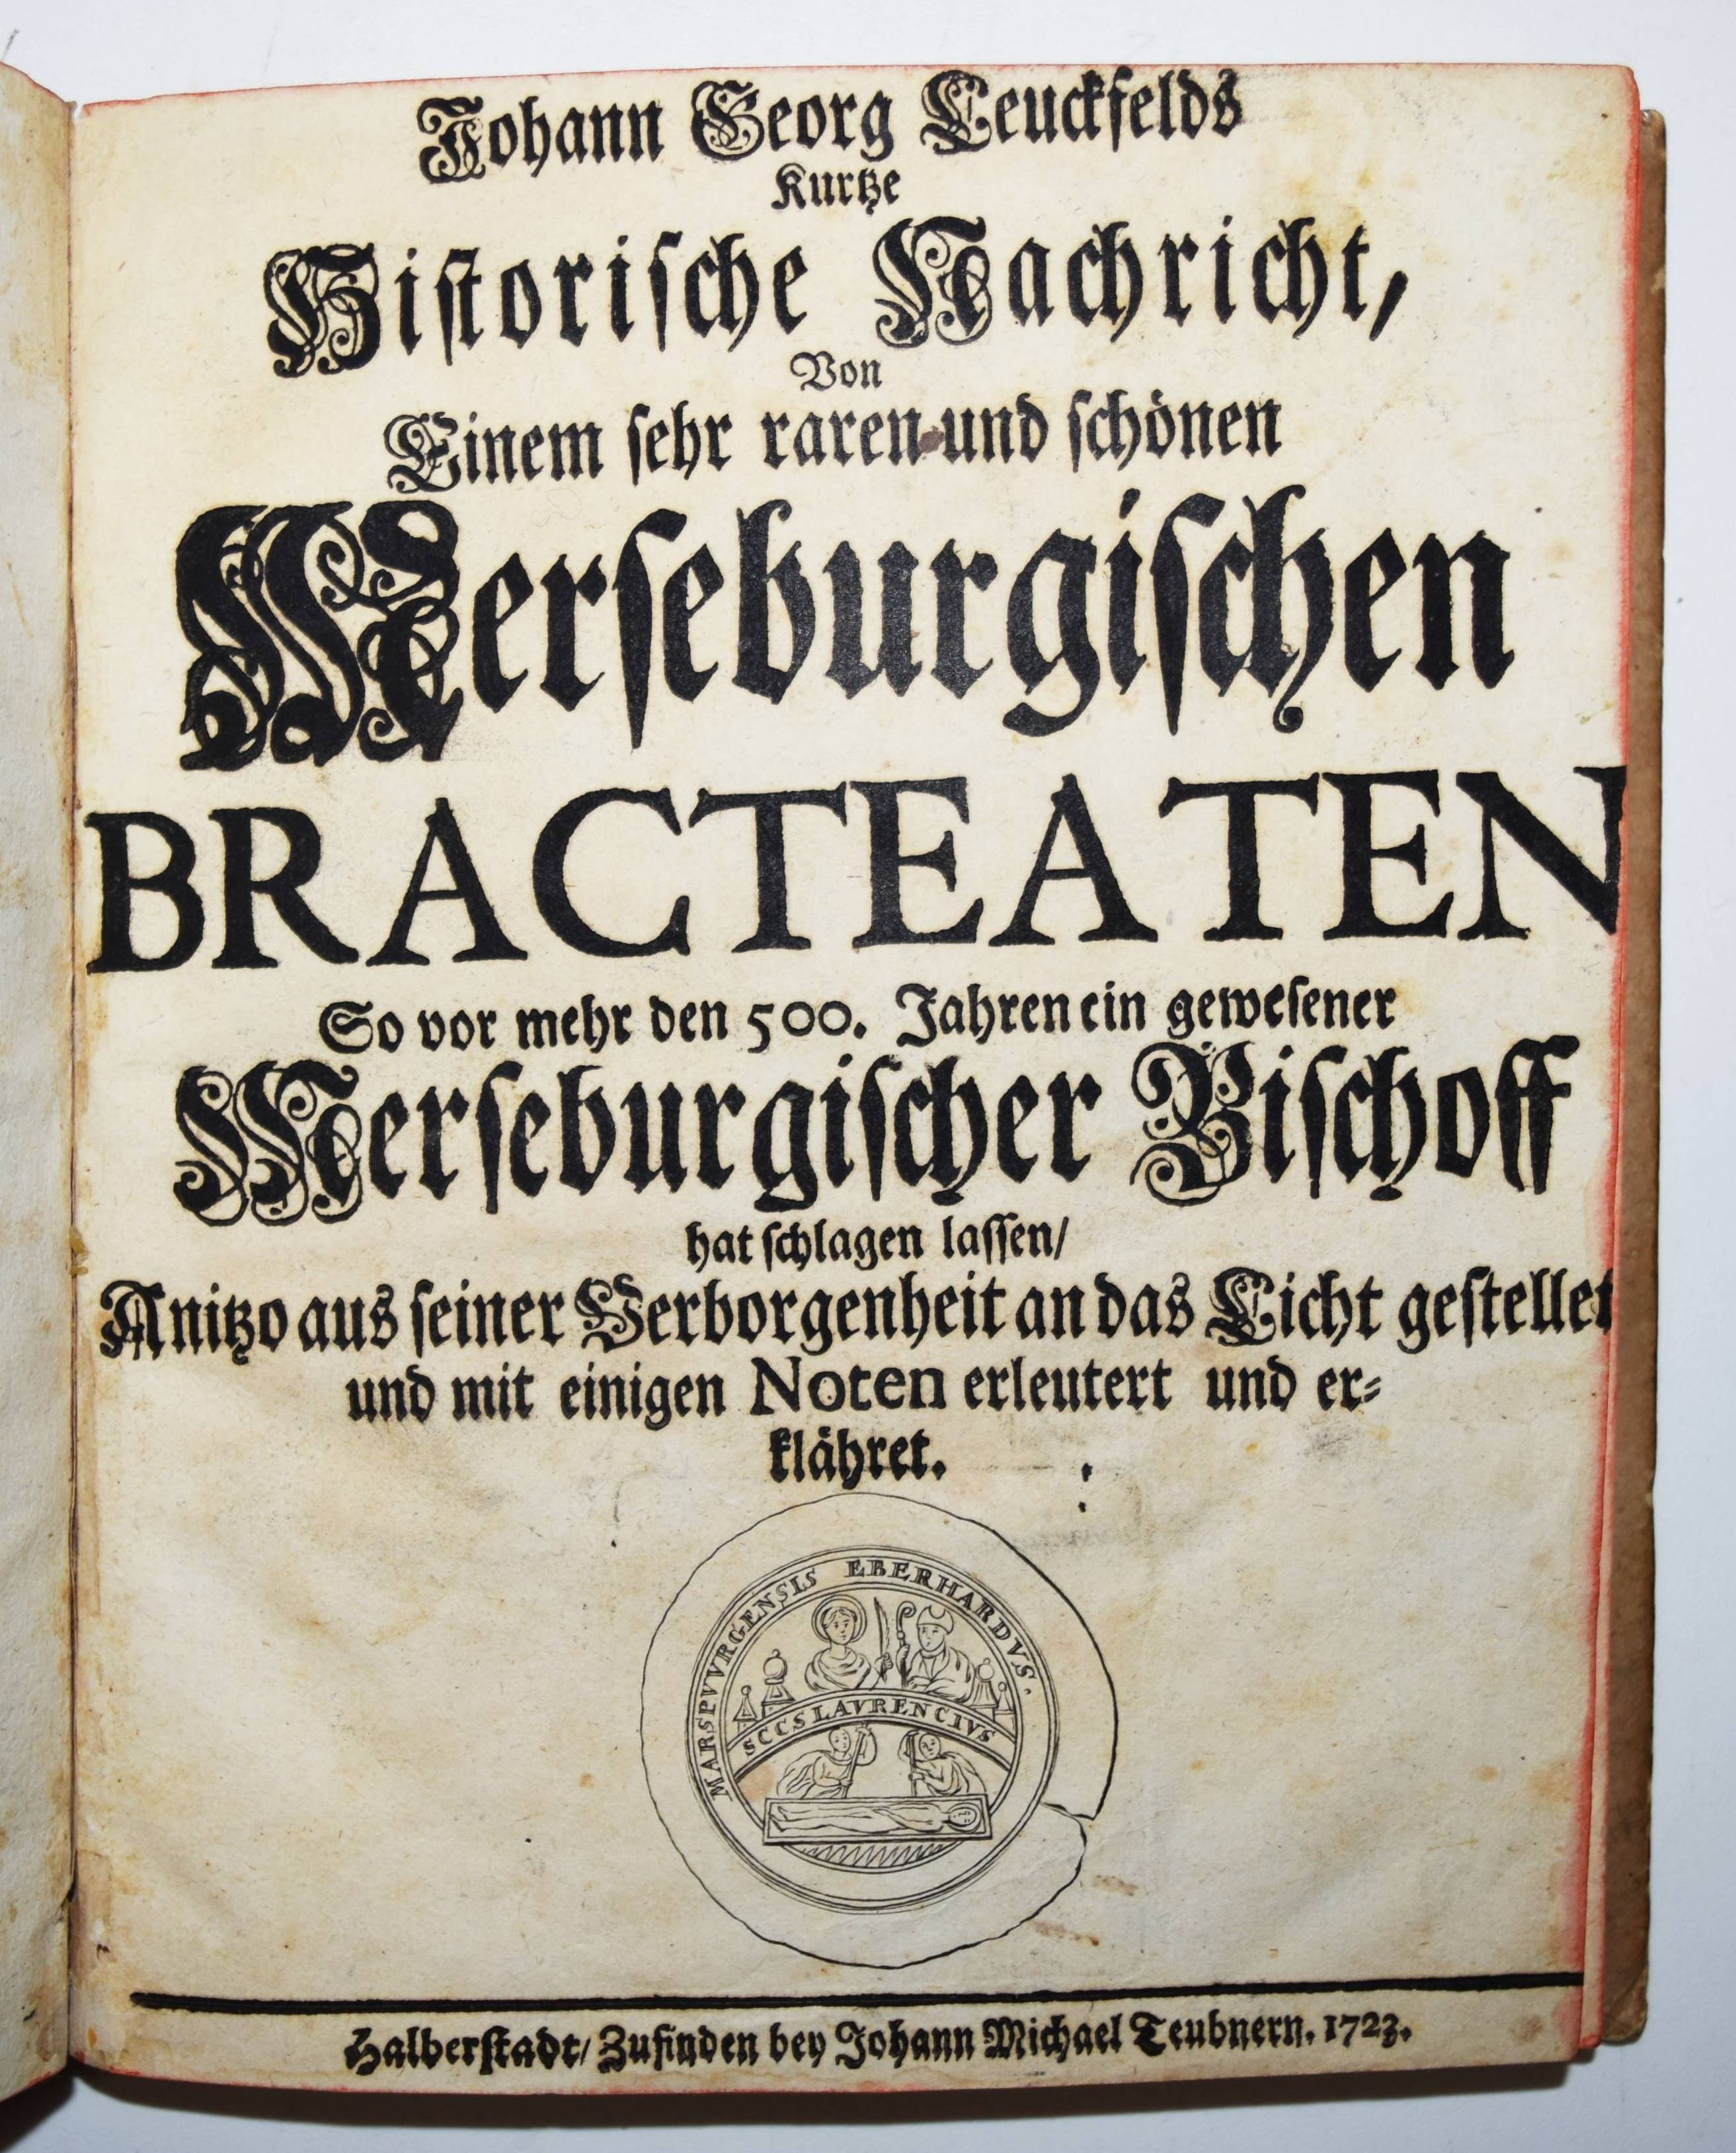 Johann Georg Leuckfelds
Kurtze
Historische Nachricht,
Von
Einem sehr raren und schönen
Merseburgischen
BRACTEATEN
So vor mehr den 500. Jahren ein gewesener
Merseburgischer Bischoff
hat schlagen lassen/
Anitzo aus seiner Verborgenheit an das Licht gestellet
und mit einigen Noten erleutert und er-
klähret.
MARSPVVRGENSIS EBERHARDVS.
SCCS LAVRENCIVS
Halberstadt/ Zufinden bey Johann Michael Teubnern. 1723.